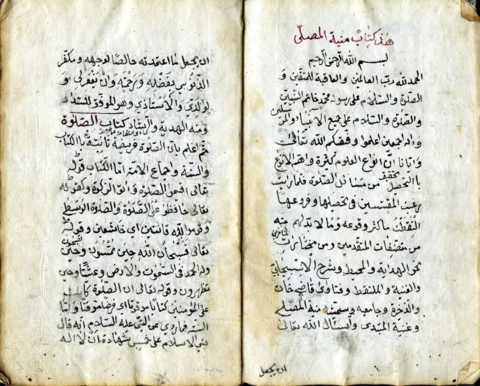 هذا كتاب منية المصلى
بسم الله الرحمن الرحيم
الحمد لله رب العالمين والعاقبة للمتقين و
الصلوة والسلام على رسوله محمد خاتم النبيين
والصلوة والسلام على جميع الانبياء والمرسلين
واله اجمعين اعلموا وفقكم الله تعالى
وايانا ان انواع العلوم كثيرة واهم الانواع
بالتحصيل مسائل الصلوة فلما رايت
رغبت المقتبسين في تحصيلها وقد
التقطت ما كثر وقوعه وما لا بد منه
من مصنفات المتقدمين ومن مختارات
نحو الهداية والمحيط وشرح الاسبيجابي
والغنية والملتقط وفتاوى قاضي خان
والذخيرة وجامعه وسميته منية المصلى
وغنية المبتدى واسئال الله تعالى
ان يجعل
ان يجعل ما اعتمدته خالصا لوجهه ومكفر
الذنوبى بفضله ورحمته وان يغفر لى و
لوالدى ولاستاذى وهو الموفق للسداد
ومنه الهداية والرشاد كتاب الصلوة
ثم اعلم بان الصلوة فريضة ثابتة بالكتاب
والسنة واجماع الامة اما الكتاب فقوله
تعالى اقيموا الصلوة واتوا الزكوة وكقوله
تعالى حافظوا على الصلوة والصلوة الوسطى
وقوموا لله قانتين اى خاشعين وقوله
تعالى فسبحان الله حين تمسون وحين تصبحون
وله الحمد في السموات والارض وعشيا وحين
تظهرون وقوله تعالى ان الصلوة كانت
على المؤمنين كتابا موقوتا اى فرضا موقتا واما
السنة فما روى عن النبى عليه السلام انه قال
بنى الاسلام على خمس شهادة ان لا اله